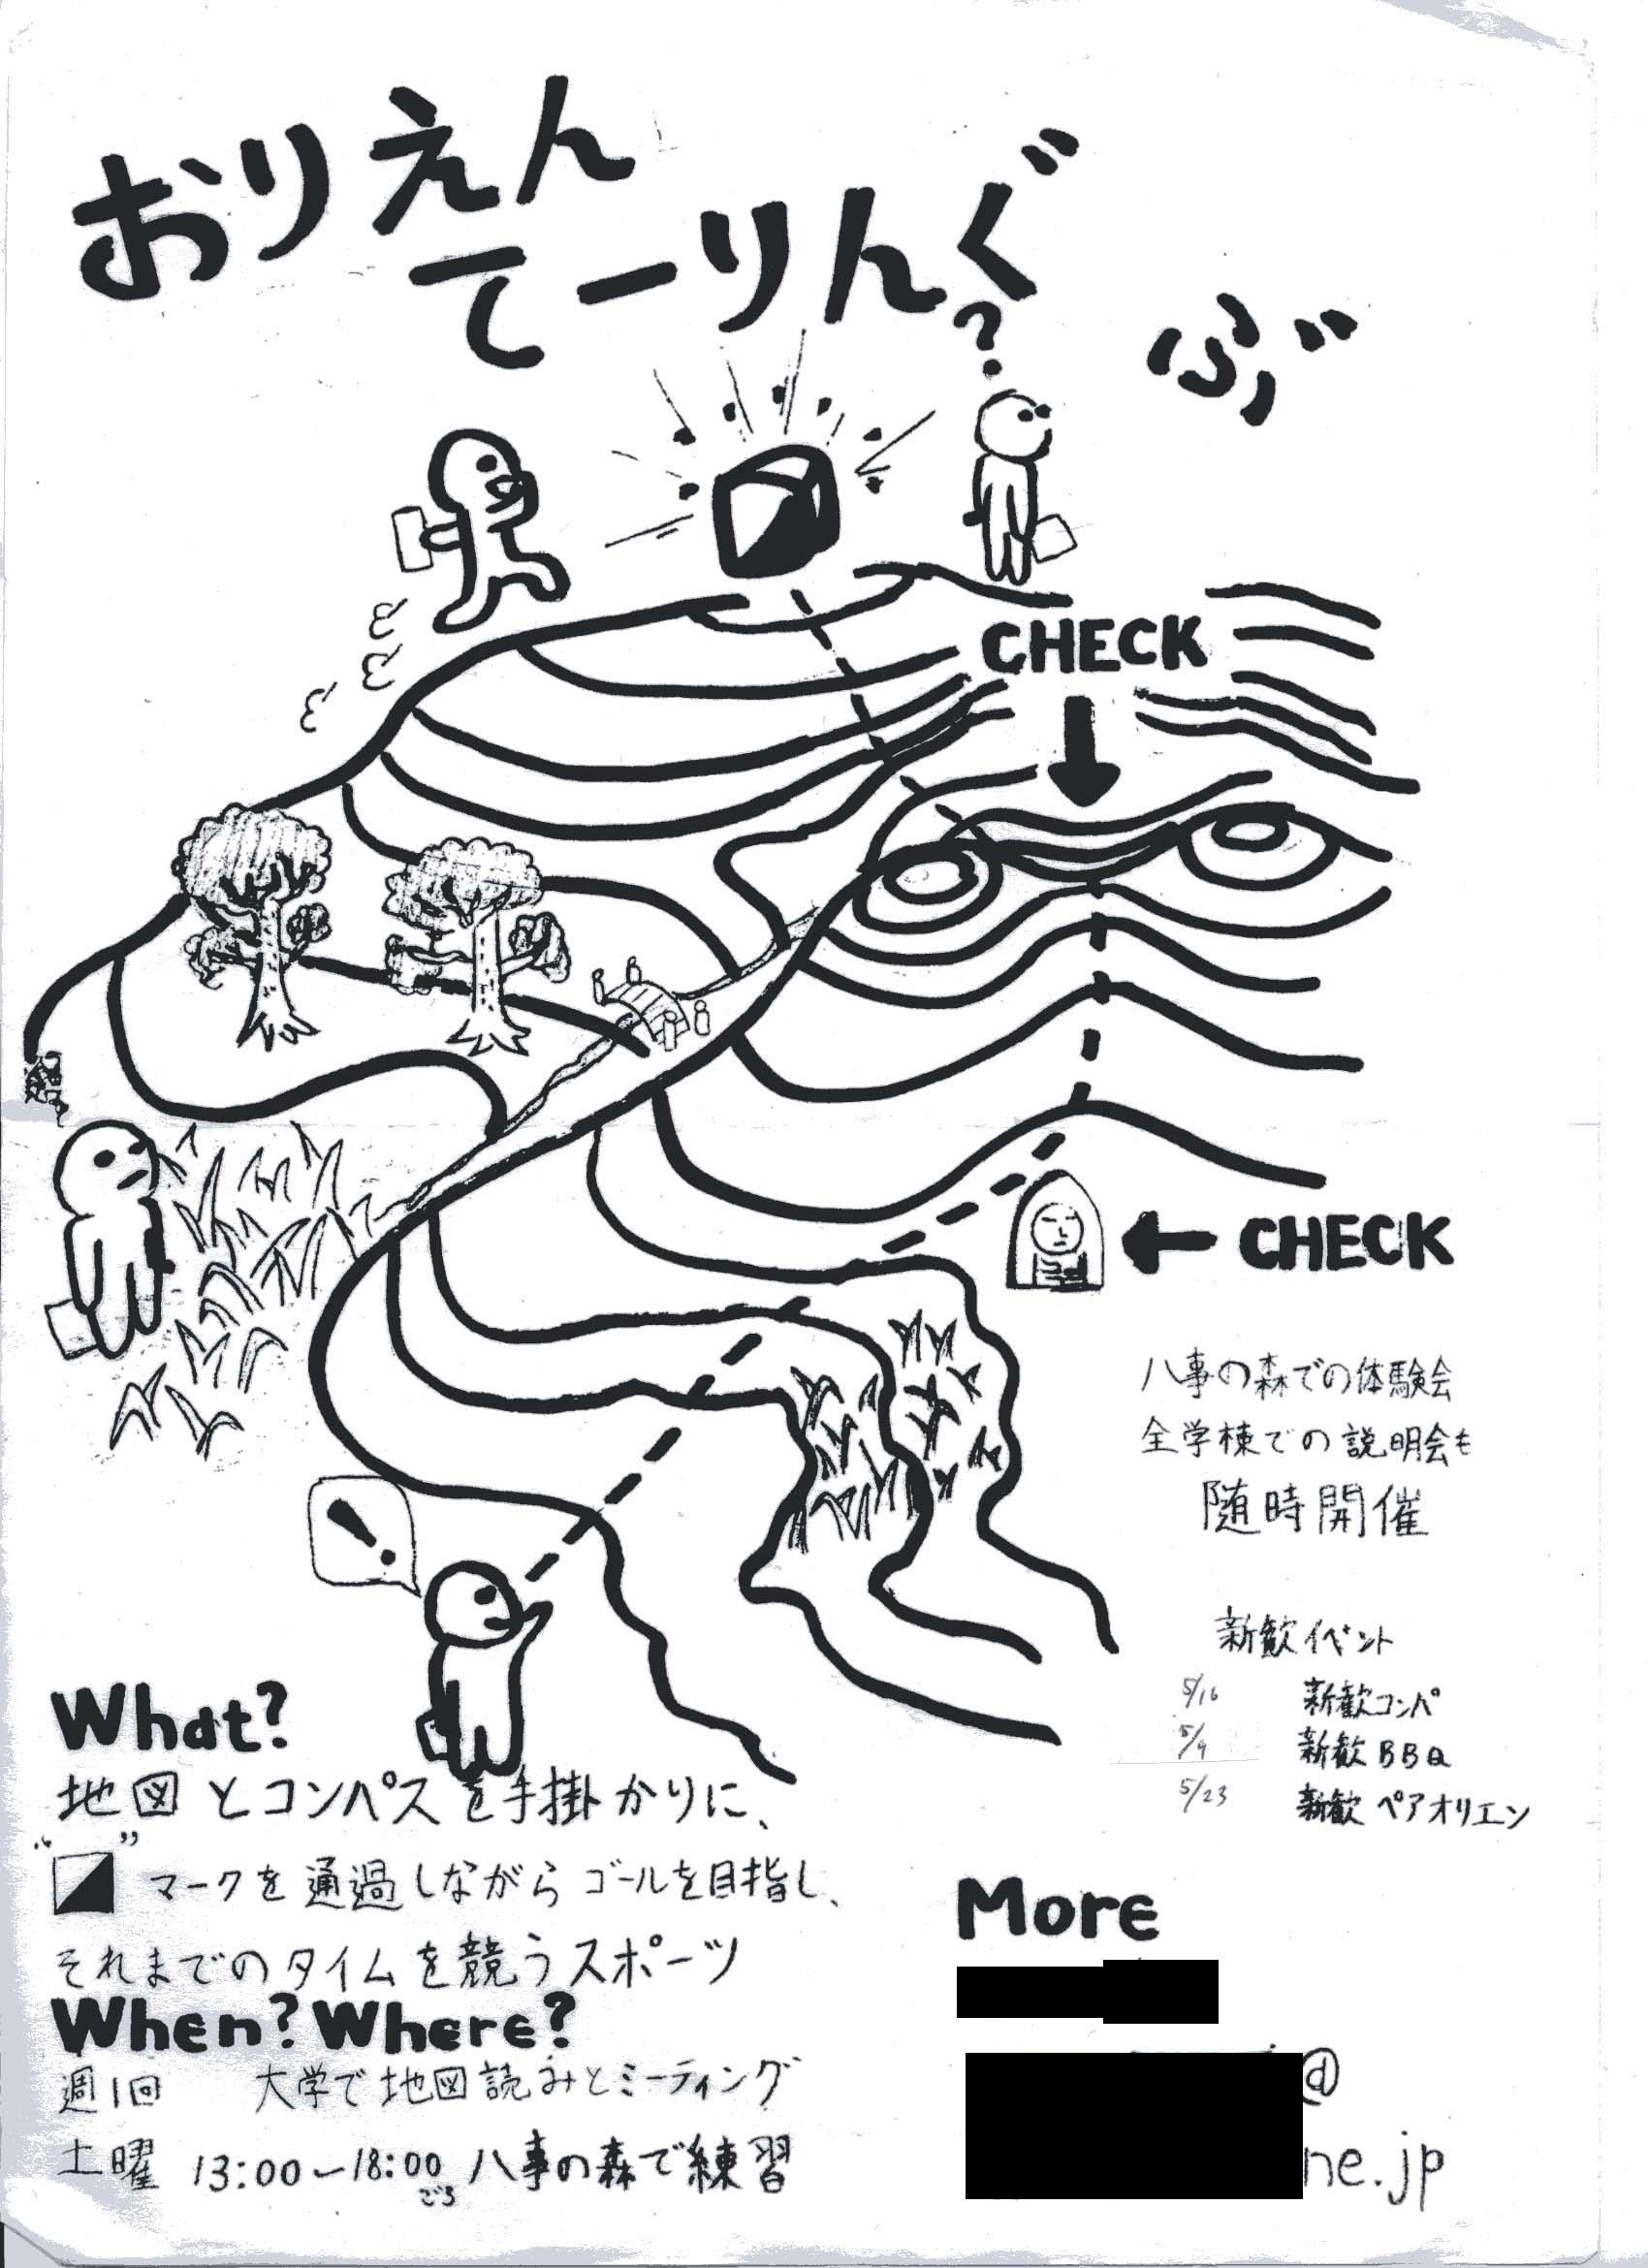 おりえん
てーりんぐ
ぶ
?
CHECK
CHECK
八事の森での体験会
全学棟での説明会も
随時開催
!
新歓イベント
5/16 新歓コンパ
5/9 新歓BBQ
5/23 新歓ペアオリエン
What?
地図とコンパスを手掛かりに、
“ ” マークを通過しながらゴールを目指し、
それまでのタイムを競うスポーツ
When? Where?
週1回 大学で地図読みとミーティング
土曜 13:00~18:00ごろ 八事の森で練習
More
@
ne.jp